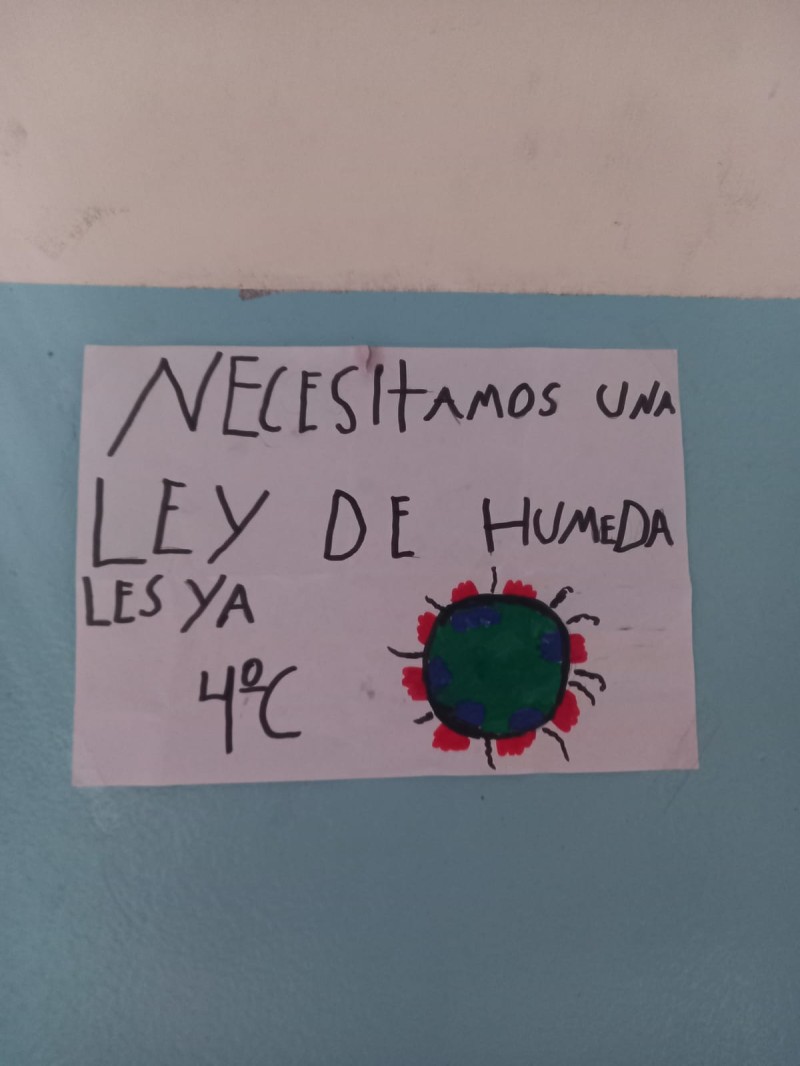 NECESITAMOS UNA
LEY DE HUMEDA
LES YA
4ºC